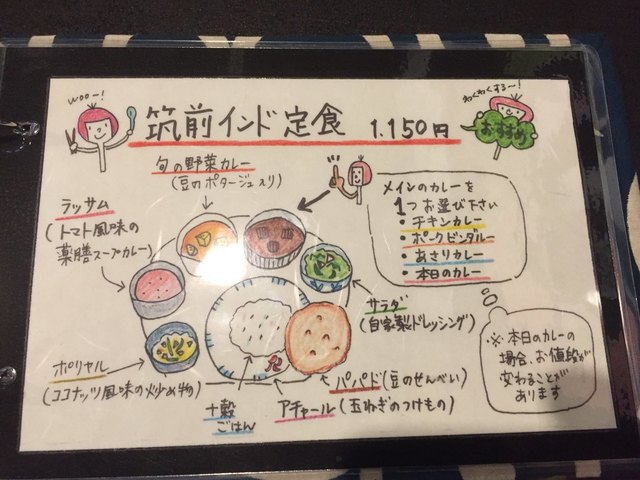 woo-!
わくわくするー!
おすすめ
筑前インド定食 1.150円
旬の野菜カレー
(豆のポタージュ入り)
ラッサム
(トマト風味の
薬膳スープカレー)
メインのカレーを
1つお選び下さい
・チキンカレー
・ポークビンダルー
・あさりカレー
・本日のカレー
サラダ
(自家製ドレッシング)
ポリヤル
(ココナッツ風味の炒め物)
十穀
ごはん
アチャール(玉ねぎのつけもの)
パパド(豆のせんべい)
※本日のカレーの
場合、お値段が
変わることが
あります